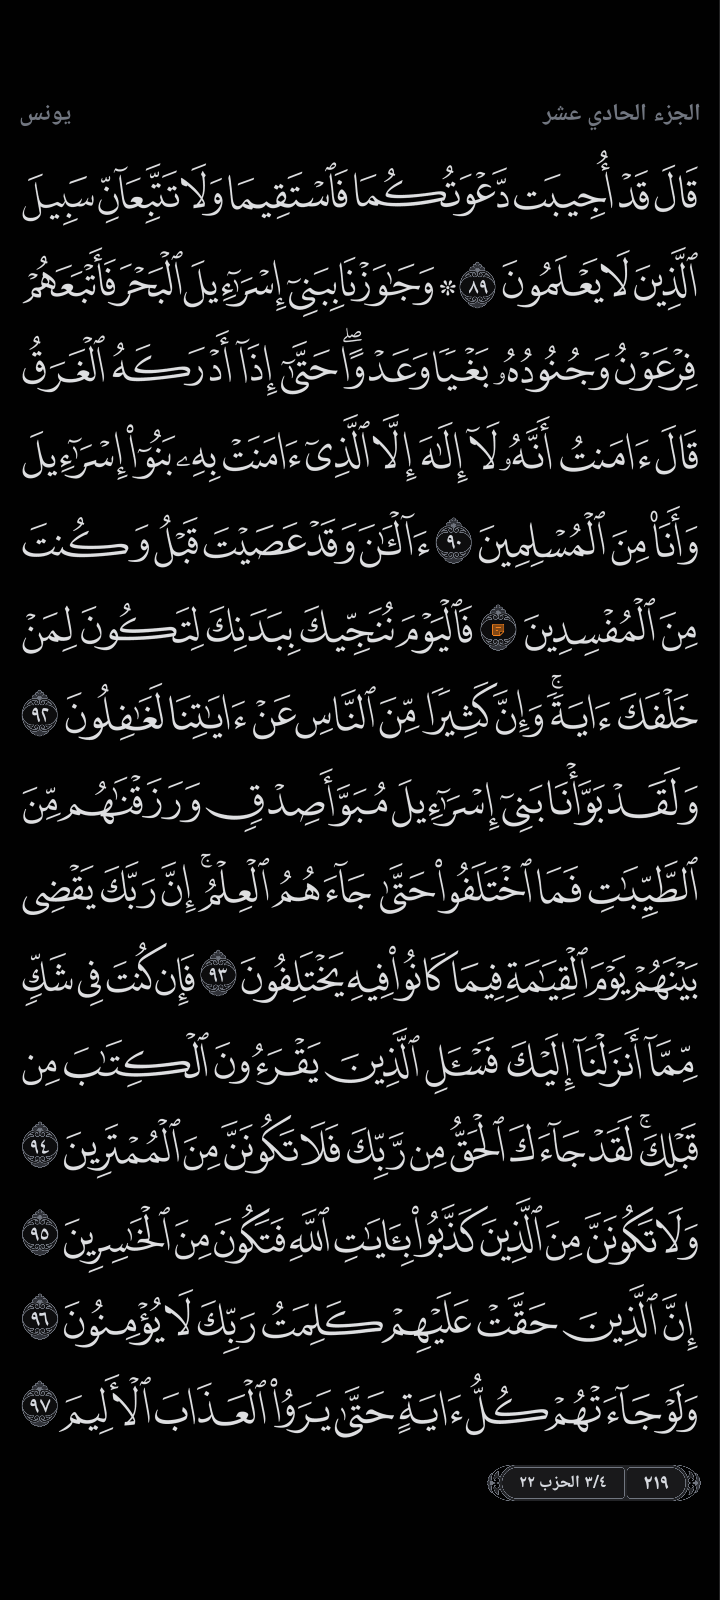 الجزء الحادي عشر
يونس
قَالَ قَدۡ أُجِيبَت دَّعۡوَتُكُمَا فَٱسۡتَقِيمَا وَلَا تَتَّبِعَآنِّ سَبِيلَ
ٱلَّذِينَ لَا يَعۡلَمُونَ ٨٩ ۞ وَجَٰوَزۡنَا بِبَنِيٓ إِسۡرَٰٓءِيلَ ٱلۡبَحۡرَ فَأَتۡبَعَهُمۡ
فِرۡعَوۡنُ وَجُنُودُهُۥ بَغۡيٗا وَعَدۡوًاۖ حَتَّىٰٓ إِذَآ أَدۡرَكَهُ ٱلۡغَرَقُ
قَالَ ءَامَنتُ أَنَّهُۥ لَآ إِلَٰهَ إِلَّا ٱلَّذِيٓ ءَامَنَتۡ بِهِۦ بَنُوٓاْ إِسۡرَٰٓءِيلَ
وَأَنَا۠ مِنَ ٱلۡمُسۡلِمِينَ ٩٠ ءَآلۡـَٰٔنَ وَقَدۡ عَصَيۡتَ قَبۡلُ وَكُنتَ
مِنَ ٱلۡمُفۡسِدِينَ فَٱلۡيَوۡمَ نُنَجِّيكَ بِبَدَنِكَ لِتَكُونَ لِمَنۡ
خَلۡفَكَ ءَايَةٗۚ وَإِنَّ كَثِيرٗا مِّنَ ٱلنَّاسِ عَنۡ ءَايَٰتِنَا لَغَٰفِلُونَ ٩٢
وَلَقَدۡ بَوَّأۡنَا بَنِيٓ إِسۡرَٰٓءِيلَ مُبَوَّأَ صِدۡقٖ وَرَزَقۡنَٰهُم مِّنَ
ٱلطَّيِّبَٰتِ فَمَا ٱخۡتَلَفُواْ حَتَّىٰ جَآءَهُمُ ٱلۡعِلۡمُۚ إِنَّ رَبَّكَ يَقۡضِي
بَيۡنَهُمۡ يَوۡمَ ٱلۡقِيَٰمَةِ فِيمَا كَانُواْ فِيهِ يَخۡتَلِفُونَ ٩٣ فَإِن كُنتَ فِي شَكّٖ
مِّمَّآ أَنزَلۡنَآ إِلَيۡكَ فَسۡـَٔلِ ٱلَّذِينَ يَقۡرَءُونَ ٱلۡكِتَٰبَ مِن
قَبۡلِكَۚ لَقَدۡ جَآءَكَ ٱلۡحَقُّ مِن رَّبِّكَ فَلَا تَكُونَنَّ مِنَ ٱلۡمُمۡتَرِينَ ٩٤
وَلَا تَكُونَنَّ مِنَ ٱلَّذِينَ كَذَّبُواْ بِـَٔايَٰتِ ٱللَّهِ فَتَكُونَ مِنَ ٱلۡخَٰسِرِينَ ٩٥
إِنَّ ٱلَّذِينَ حَقَّتۡ عَلَيۡهِمۡ كَلِمَتُ رَبِّكَ لَا يُؤۡمِنُونَ ٩٦
وَلَوۡ جَآءَتۡهُمۡ كُلُّ ءَايَةٍ حَتَّىٰ يَرَوُاْ ٱلۡعَذَابَ ٱلۡأَلِيمَ ٩٧
٢١٩ ٣/٤ الحزب ٢٢